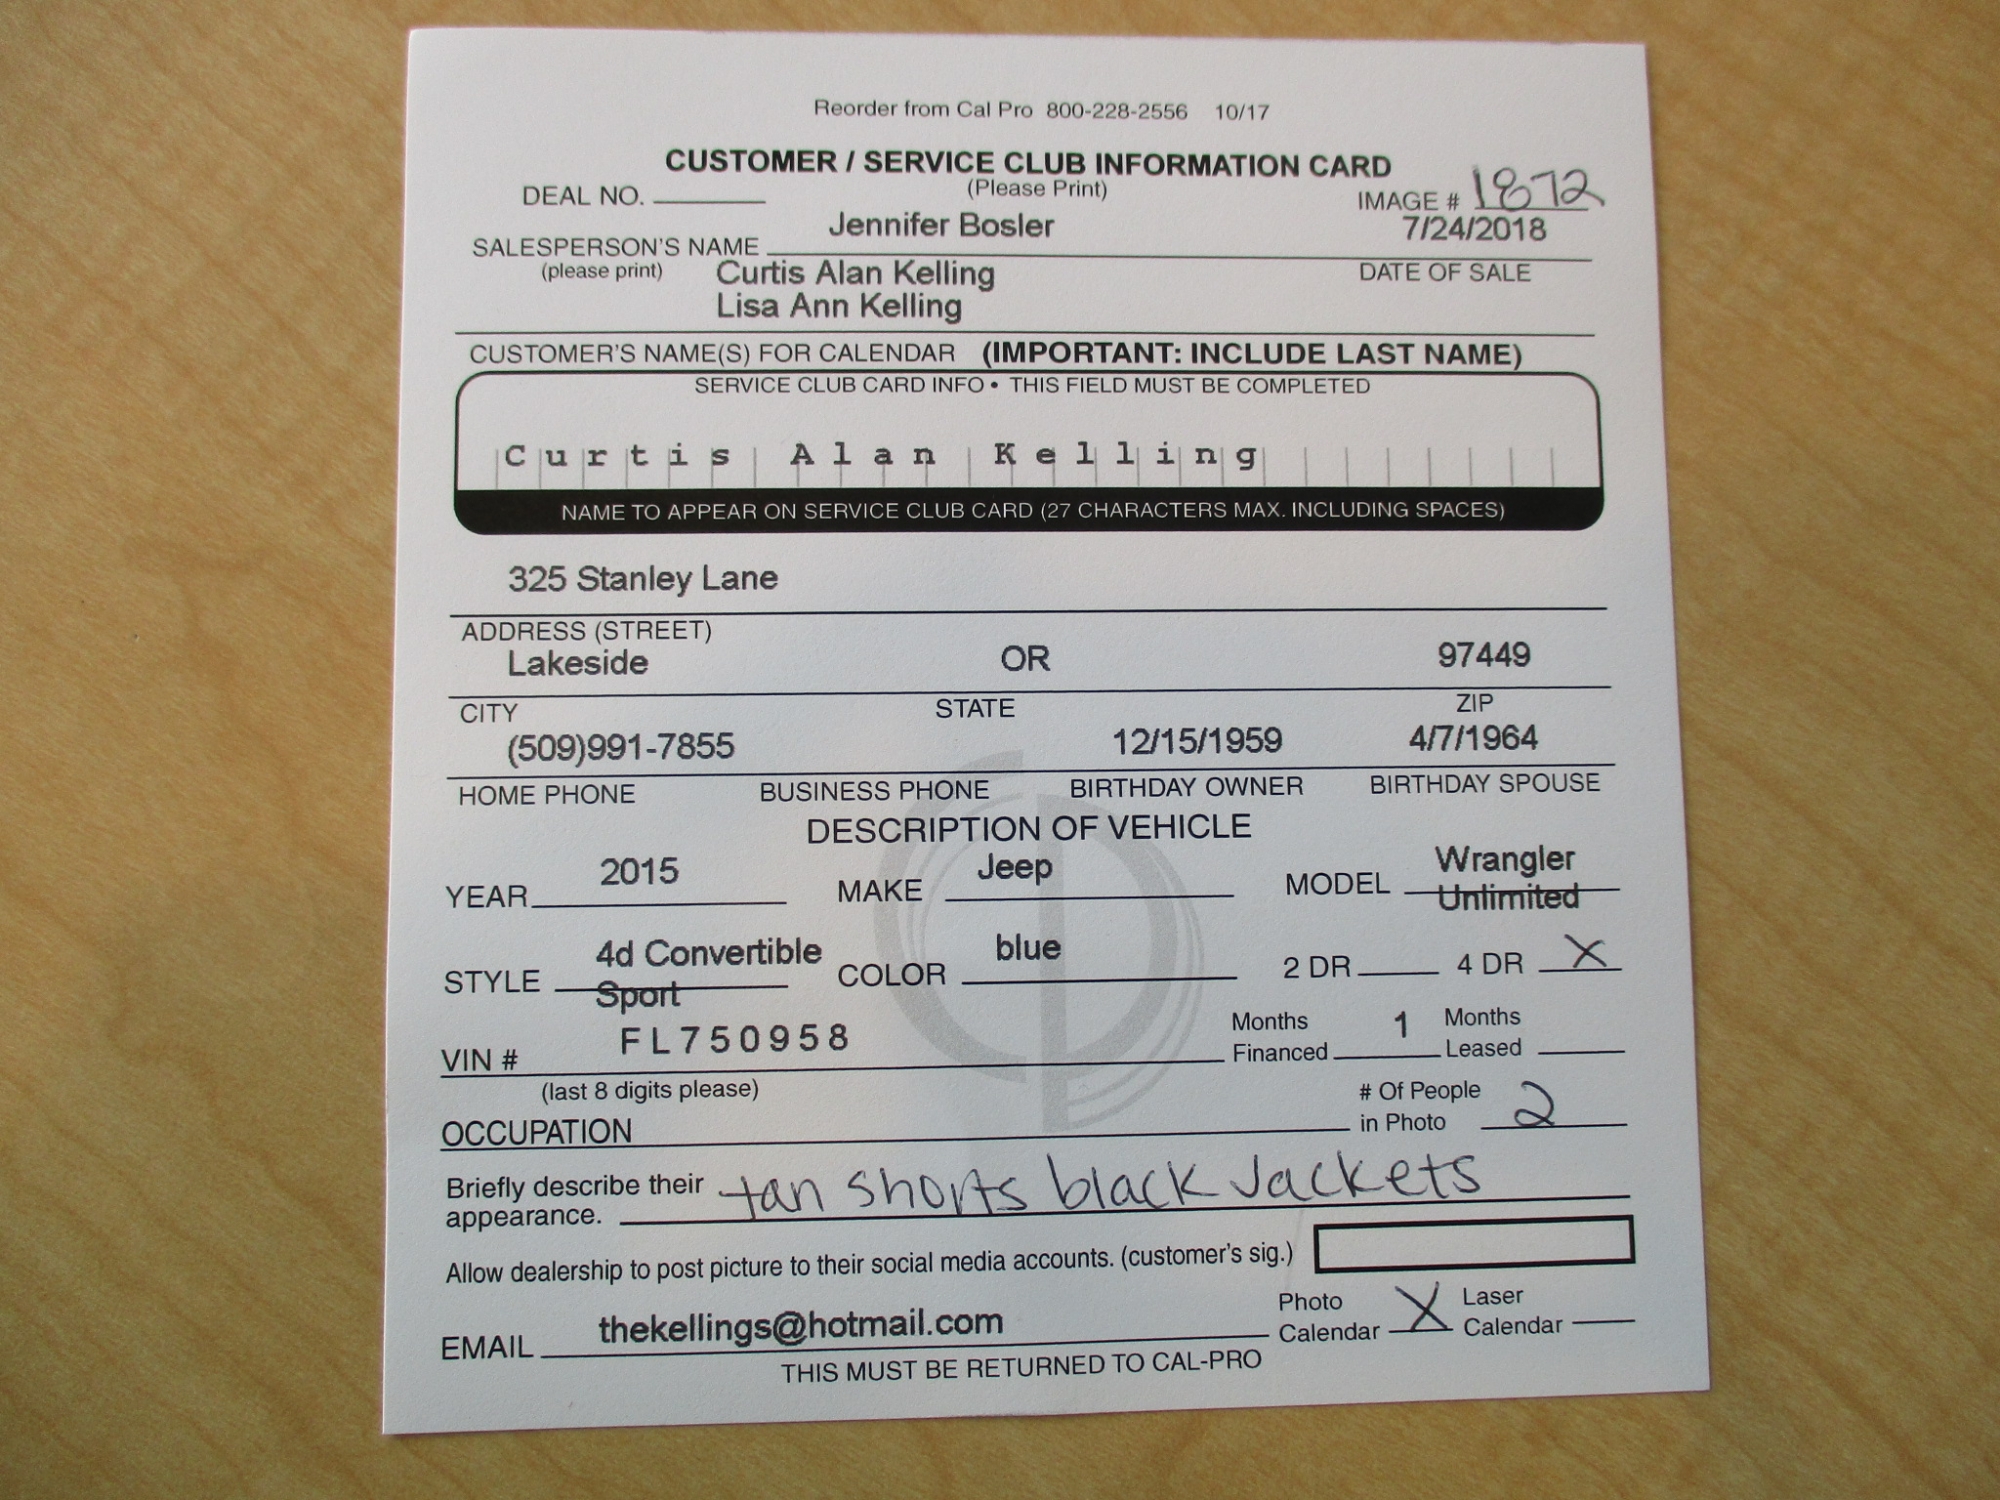 Reorder from Cal Pro 800-228-2556 10/17
CUSTOMER / SERVICE CLUB INFORMATION CARD
(Please Print)
DEAL NO.
IMAGE # 1872
Jennifer Bosler 7/24/2018
SALESPERSON'S NAME
(please print) DATE OF SALE
Curtis Alan Kelling
Lisa Ann Kelling
CUSTOMER'S NAME(S) FOR CALENDAR (IMPORTANT: INCLUDE LAST NAME)
SERVICE CLUB CARD INFO • THIS FIELD MUST BE COMPLETED
Curtis Alan Kelling
NAME TO APPEAR ON SERVICE CLUB CARD (27 CHARACTERS MAX. INCLUDING SPACES)
325 Stanley Lane
ADDRESS (STREET)
Lakeside OR 97449
CITY STATE ZIP
(509)991-7855 12/15/1959 4/7/1964
HOME PHONE BUSINESS PHONE BIRTHDAY OWNER BIRTHDAY SPOUSE
DESCRIPTION OF VEHICLE
YEAR 2015 MAKE Jeep MODEL Wrangler
Unlimited
STYLE 4d Convertible COLOR blue 2 DR 4 DR X
Sport
VIN # FL750958 Months Financed 1 Months Leased
(last 8 digits please)
OCCUPATION # Of People in Photo 2
Briefly describe their appearance. tan shorts black Jackets
Allow dealership to post picture to their social media accounts. (customer's sig.)
EMAIL thekellings@hotmail.com Photo Calendar X Laser Calendar
THIS MUST BE RETURNED TO CAL-PRO